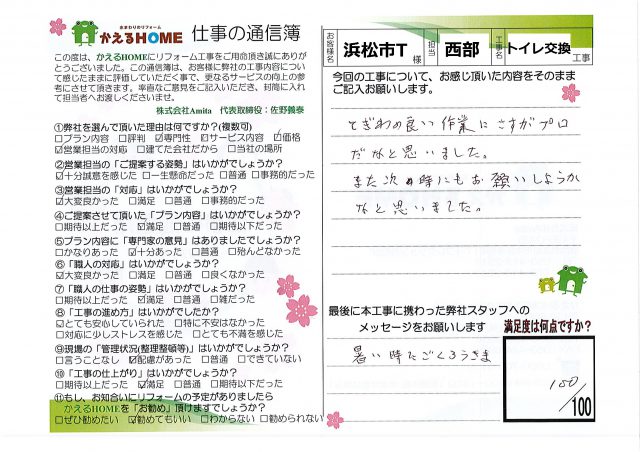 水まわりのリフォーム
かえるHOME
仕事の通信簿
この度は、かえるHOMEにリフォーム工事をご用命頂き誠にありが
とうございました。この通信簿は、お客様に弊社の工事内容について
感じたままに評価していただく事で、更なるサービスの向上の参
考にさせて頂きます。率直なご意見をご記入いただき、封筒に入れ
て担当者へお渡しくださいませ。
株式会社Amita 代表取締役：佐野義泰
①弊社を選んで頂いた理由は何ですか?(複数可)
□プラン内容 □評判 ☑専門性 ☑サービス内容 ☑価格
☑営業担当の対応 □建てた会社だから □当社の場所
②営業担当の「ご提案する姿勢」はいかがでしょうか?
☑十分誠意を感じた □一生懸命だった □普通 □事務的だった
③営業担当の「対応」はいかがでしょうか?
☑大変良かった □満足 □普通 □事務的だった
④ご提案させて頂いた「プラン内容」はいかがでしょうか?
□期待以上だった ☑満足 □普通 □期待以下だった
⑤プラン内容に「専門家の意見」はありましたでしょうか?
□かなりあった ☑十分あった □普通 □殆んどなかった
⑥「職人の対応」はいかがでしょうか?
☑大変良かった □満足 □普通 □良くなかった
⑦「職人の仕事の姿勢」はいかがでしょうか?
□期待以上だった ☑満足 □普通 □雑だった
⑧「工事の進め方」はいかがでしたか?
☑とても安心していられた □特に不安はなかった
□対応に少しストレスを感じた □とても不満を感じた
⑨現場の「管理状況(整理整頓等)」はいかがでしょうか?
□言うことなし ☑配慮があった □普通 □できていない
⑩「工事の仕上がり」はいかがでしょうか?
□期待以上だった ☑満足 □普通 □期待以下だった
⑪もし、お知合いにリフォームの予定がありましたら
かえるHOMEを「お勧め」頂けますでしょうか?
□ぜひ勧めたい ☑勧めてもいい □わからない □勧められない
お客様名 浜松市T 様 担当 西部 工事名 トイレ交換 工事
今回の工事について、お感じ頂いた内容をそのまま
ご記入お願いします。
てぎわの良い作業にさすがプロ
だなと思いました。
また次の時にもお願いしようか
なと思いました。
最後に本工事に携わった弊社スタッフへの
メッセージをお願いします
暑い時にごくろうさま
満足度は何点ですか?
100
/100